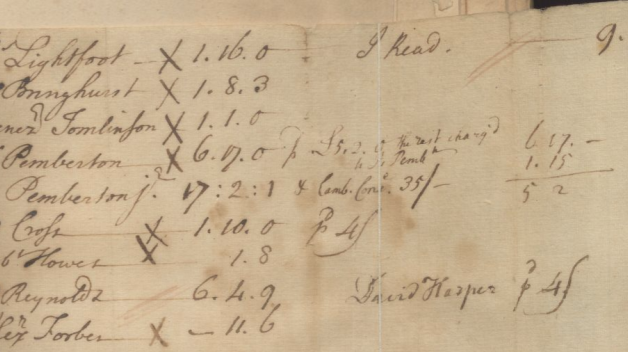 Lightfoot X 1. 16. 0 J Read. 9.
Bringhurst X 1. 8. 3
Tomlinson X 1. 1. 0
Pemberton X 6. 17. 0 p £5. 2. 0 the rest charg'd 6 17. -
to Js Pembn 1. 15
Pemberton jr. 17 : 2 : 1 & 35/- 5 2
Cross X 1. 10. 0 pd 4/
Howes X 1. 8
Reynolds 6. 4. 9 David Harper pd 4/
Forbes X - 11. 6